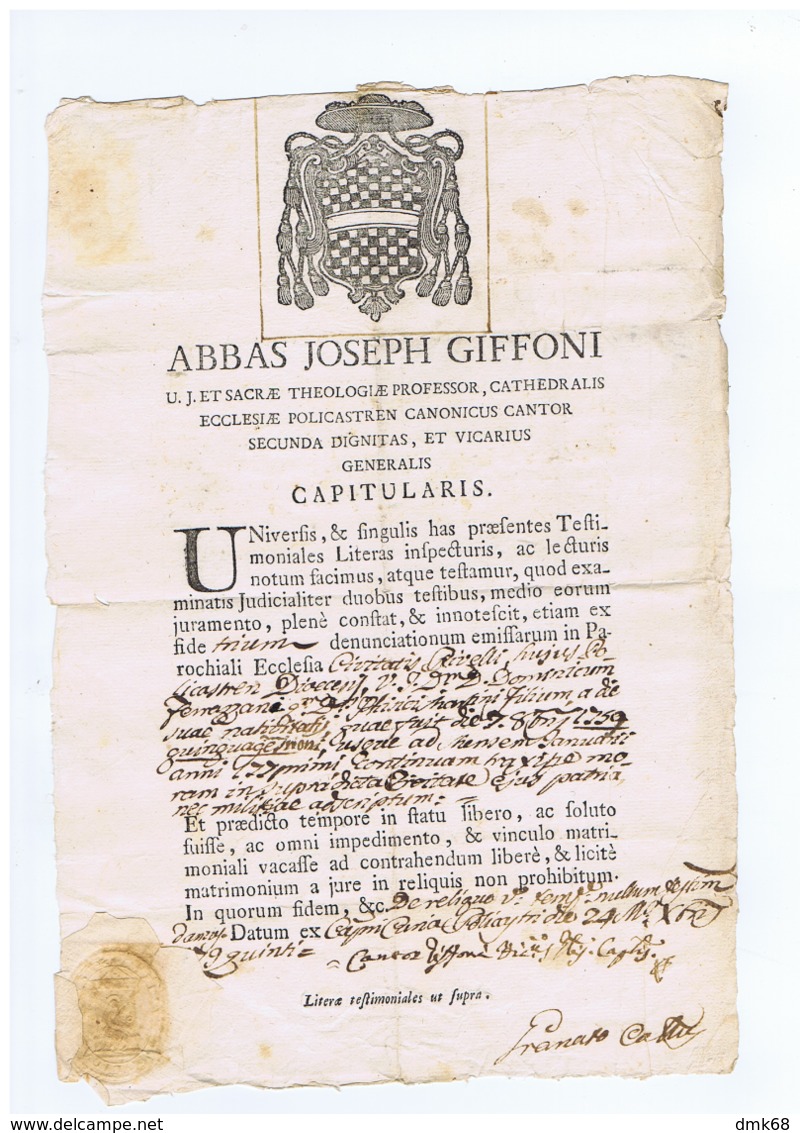 ABBAS JOSEPH GIFFONI
U. J. ET SACRÆ THEOLOGIÆ PROFESSOR, CATHEDRALIS
ECCLESIÆ POLICASTREN CANONICUS CANTOR
SECUNDA DIGNITAS, ET VICARIUS
GENERALIS
CAPITULARIS.
UNiverſis, & ſingulis has præſentes Teſti-
moniales Literas inſpecturis, ac lecturis
notum facimus, atque teſtamur, quod exa-
minatis Judicialiter duobus teſtibus, medio eorum
juramento, plenè conſtat, & innoteſcit, etiam ex
fide trium denunciationum emiſſarum in Pa-
rochiali Eccleſia Civitatis hujus Po-
licastren Dominicum
filium, a die
suae nativitatis, quae fuit die 1759
usque ad Mensem Januarii
anni continuam traxisse mo-
ram in supradicta Civitate ejus patria
nec militiae adscriptum. =
Et prædicto tempore in ſtatu libero, ac ſoluto
fuiſſe, ac omni impedimento, & vinculo matri-
moniali vacaſſe ad contrahendum liberè, & licitè
matrimonium a jure in reliquis non prohibitum.
In quorum fidem, &c. De reliquo nullum
Datum ex Curia die 24
Cantor Giffoni
Literæ teſtimoniales ut ſupra.
dmk68